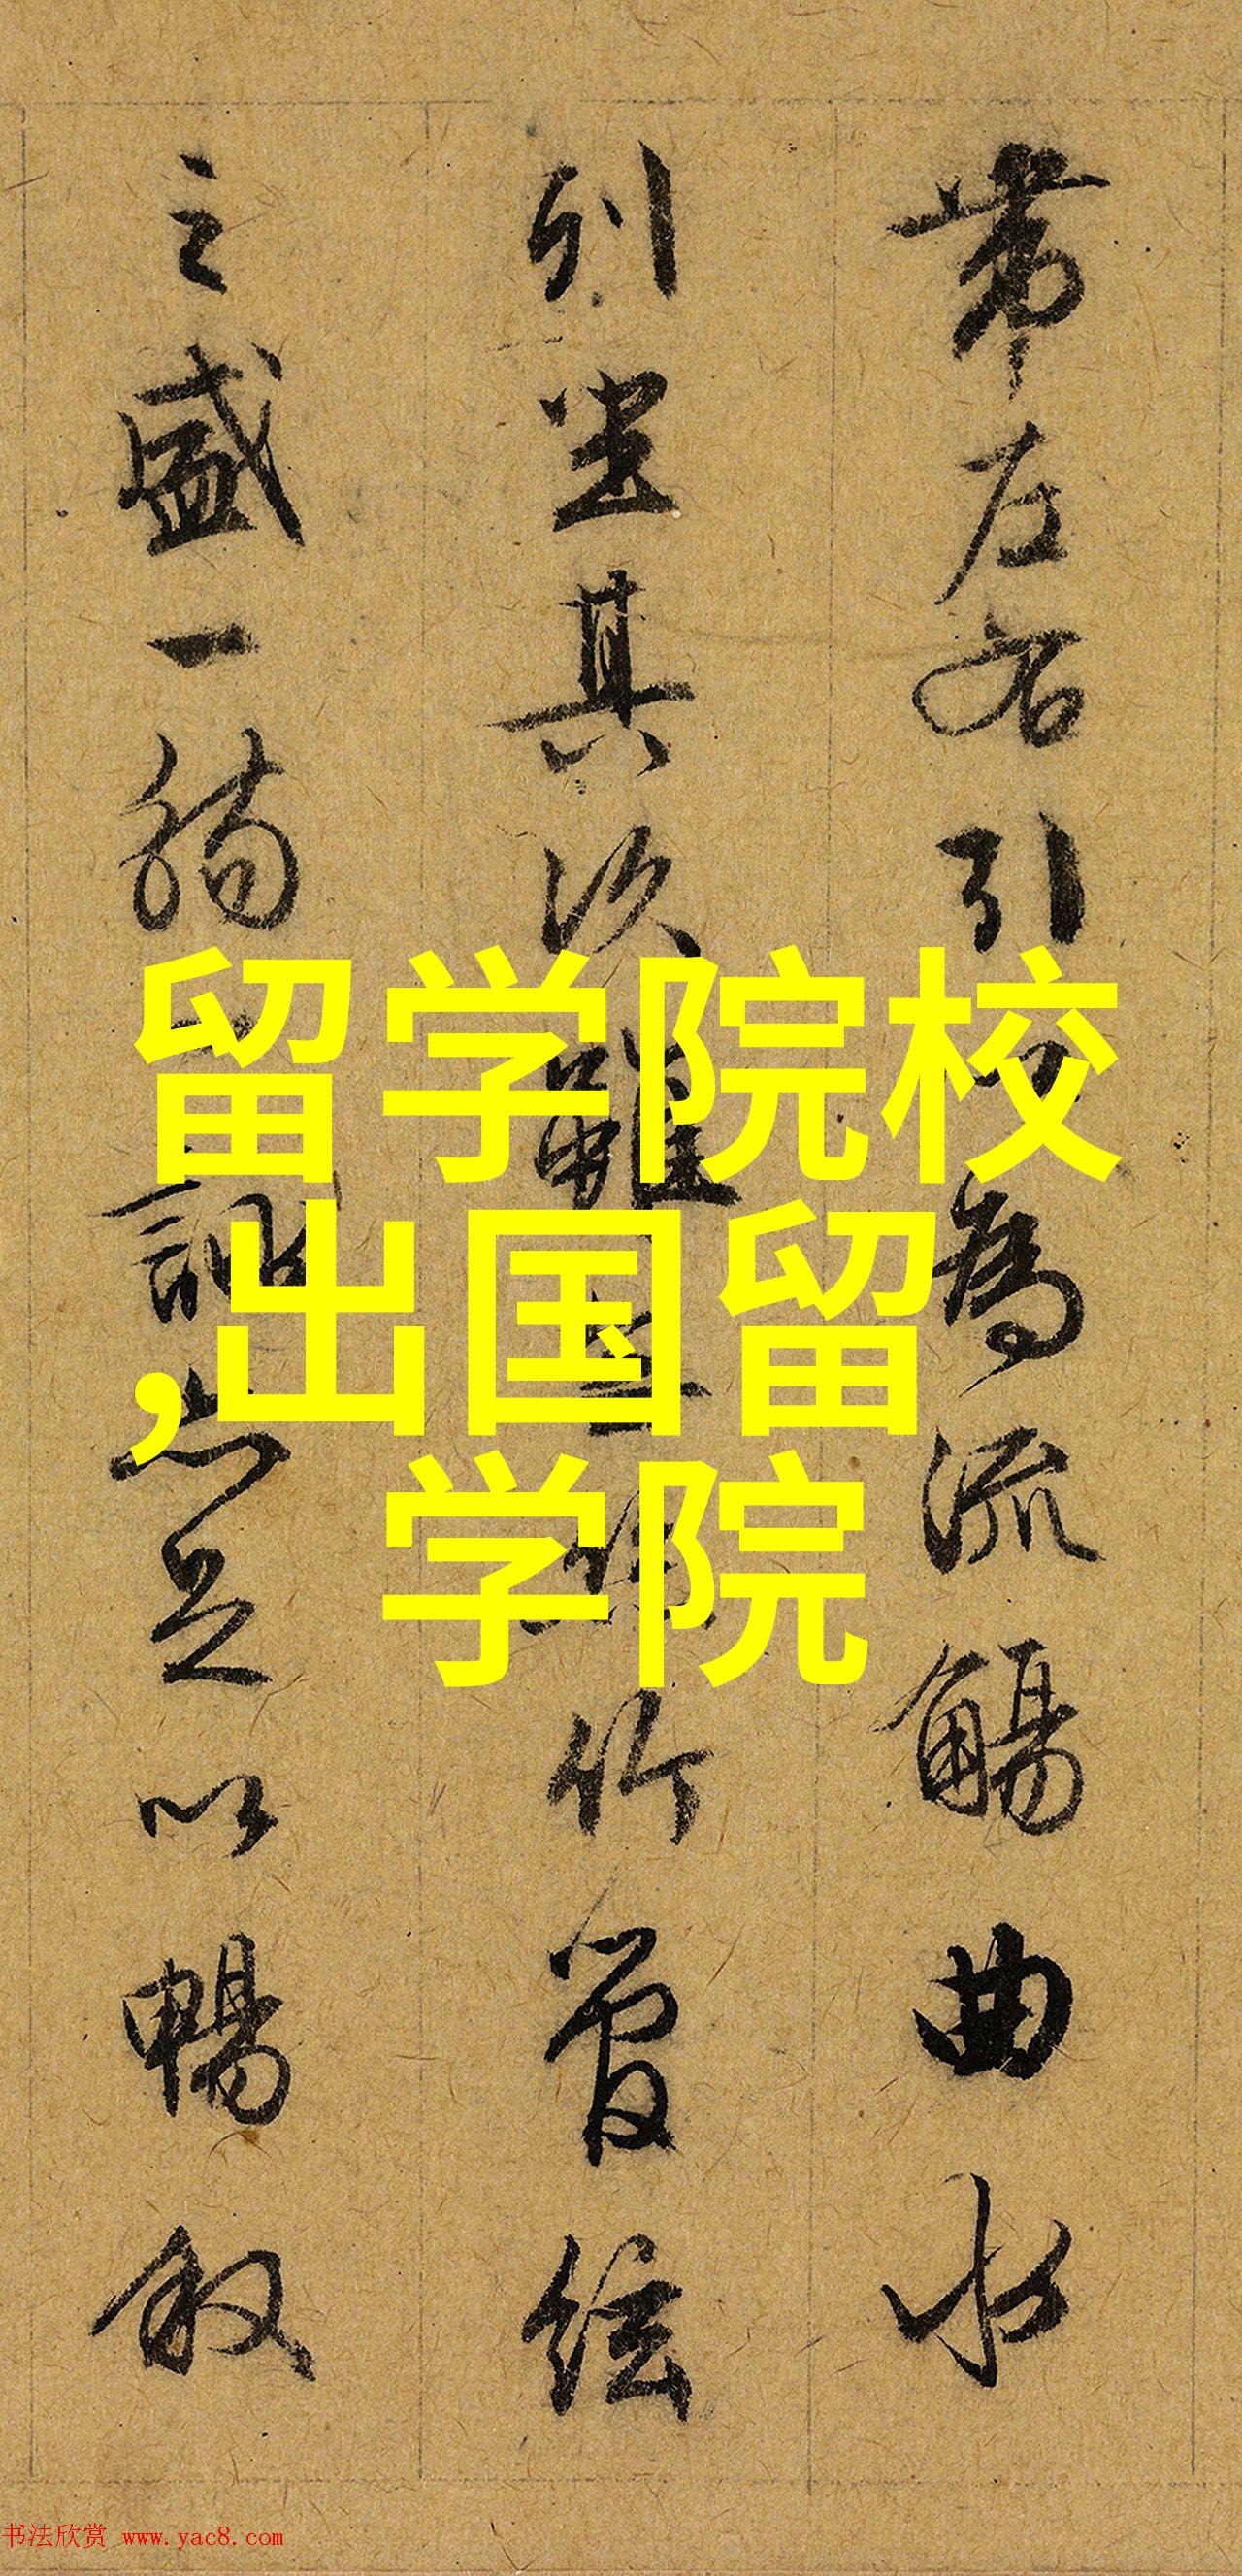 帶左右引為流觴曲水
列坐其次雖竹管絃
之盛一觴詠亦足以暢敘
留学院校
,出国留
学院
书法欣赏 www.yac8.com